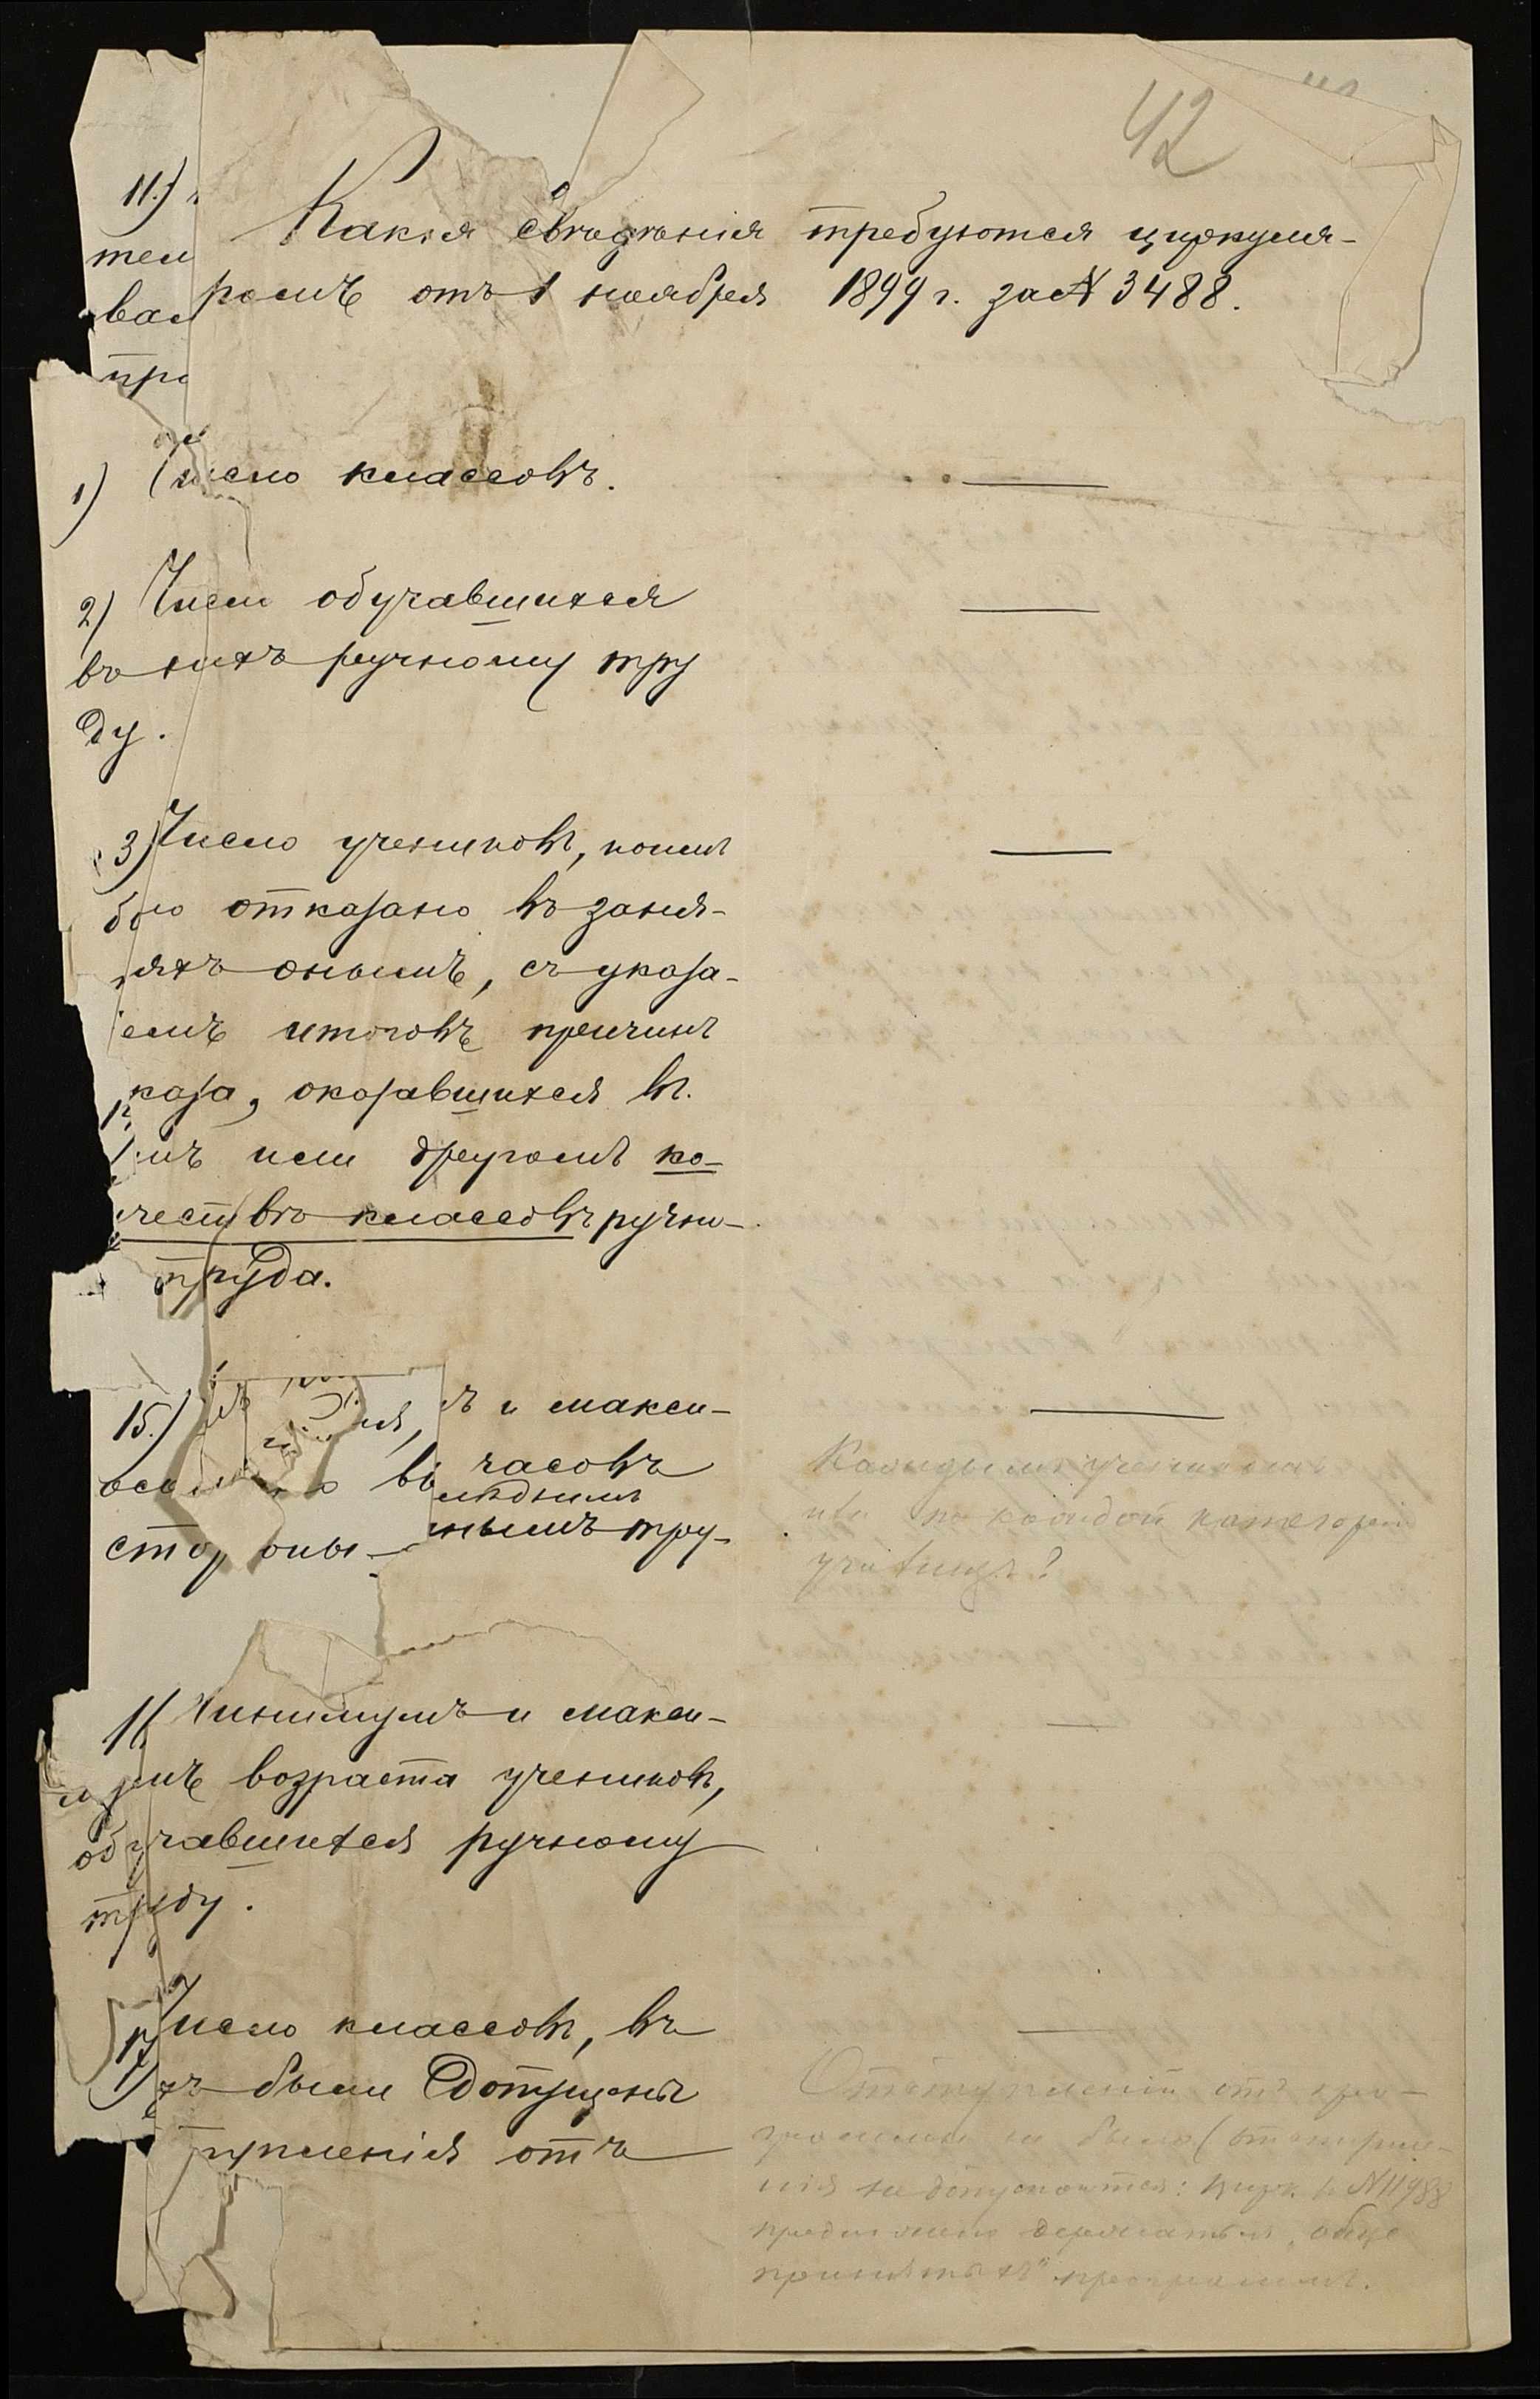 42
Какія свѣдѣнія требуются циркуля-
ромъ отъ 1 ноября 1899 г. за № 3488.
11.)
тел
вал
при
1) Число классовъ.
2) Число обучавшихся
въ нихъ ручному тру
ду.
3) Число учениковъ, коимъ
было отказано въ заня-
тіяхъ онымъ, съ указа-
емъ итоговъ причинъ
каза, оказавшихся въ
мъ или другомъ ко-
чествѣ классовъ ручно-
труда.
15.) ъ и макси-
часовъ
сто оны- нымъ тру-
Каждымъ ученикомъ
или по каждой категоріи
училищъ?
Минимумъ и макси-
мумъ возраста учениковъ,
обучавшихся ручному
труду.
Число классовъ, въ
хъ были допущены
тупленія отъ
Отступленій отъ про-
граммы не было (отступле-
нія не допускаются: цирк. № 11988
предложено держаться „обще
принятыхъ" программъ.